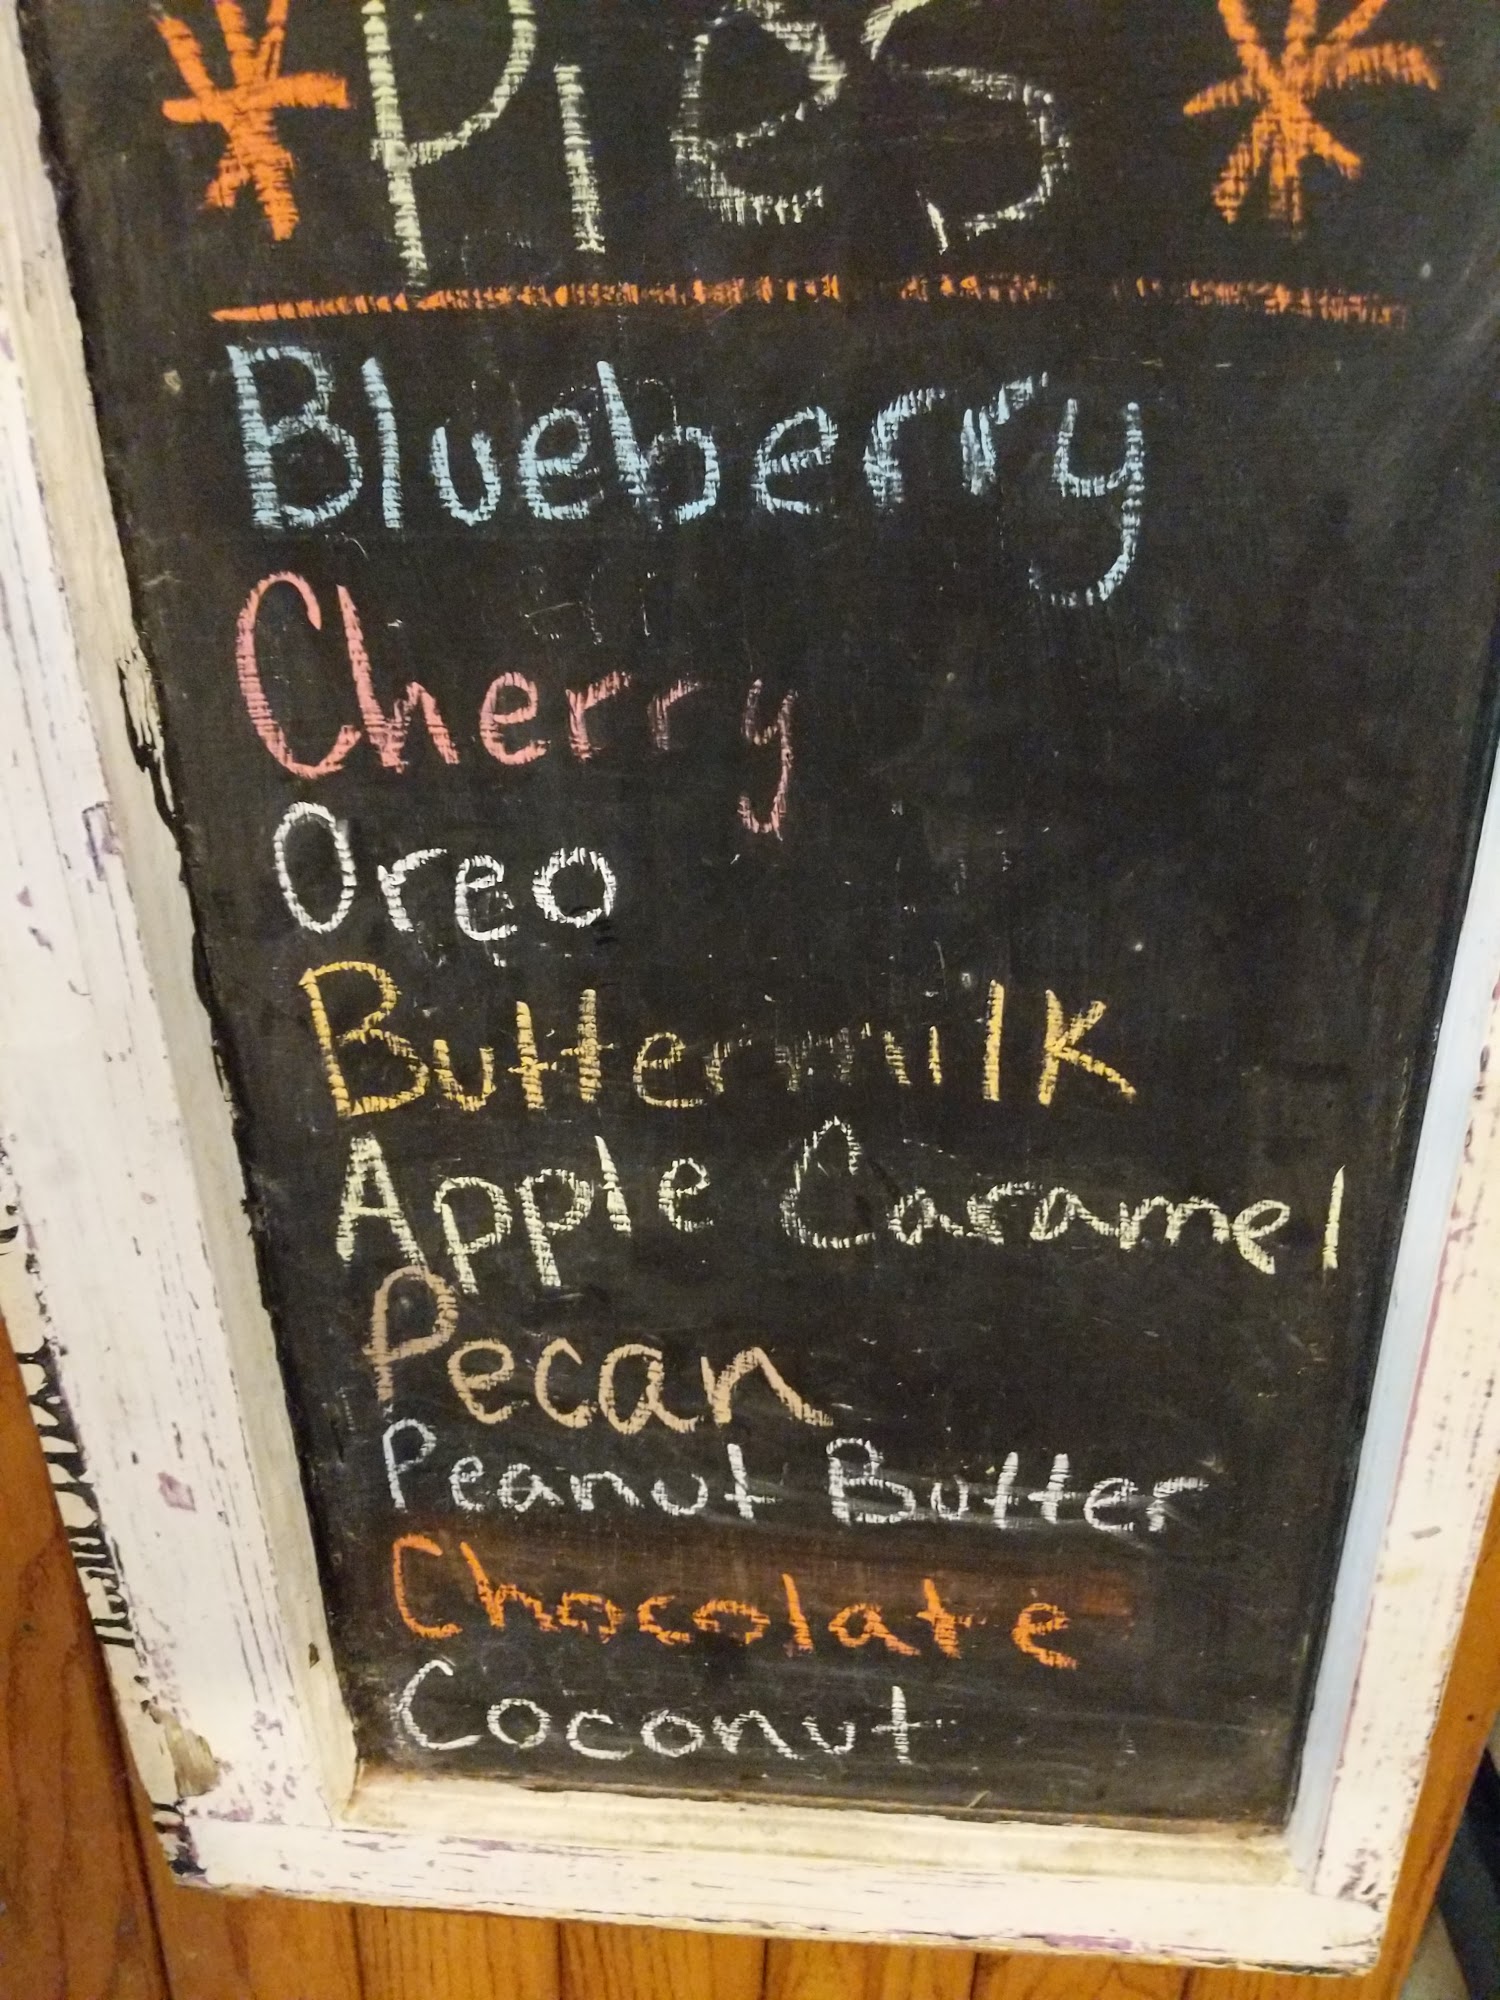 Pies
Blueberry
Cherry
Oreo
Buttermilk
Apple Caramel
Pecan
Peanut Butter
Chocolate
Coconut